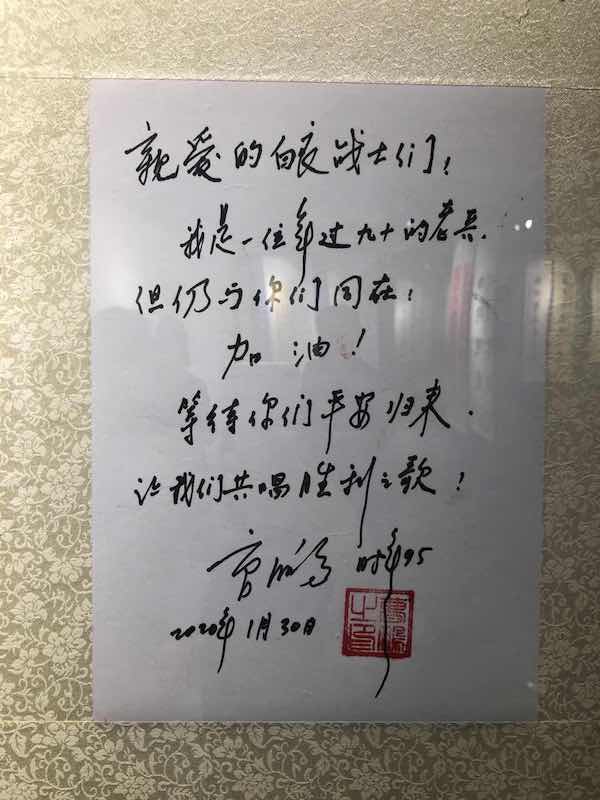 親爱的白衣战士们！
我是一位年过九十的老兵，
但仍与你们同在！
加油！
等待你们平安归来，
让我们共唱胜利之歌！
曹鹏 时年95
2020年1月30日
曹鹏之印